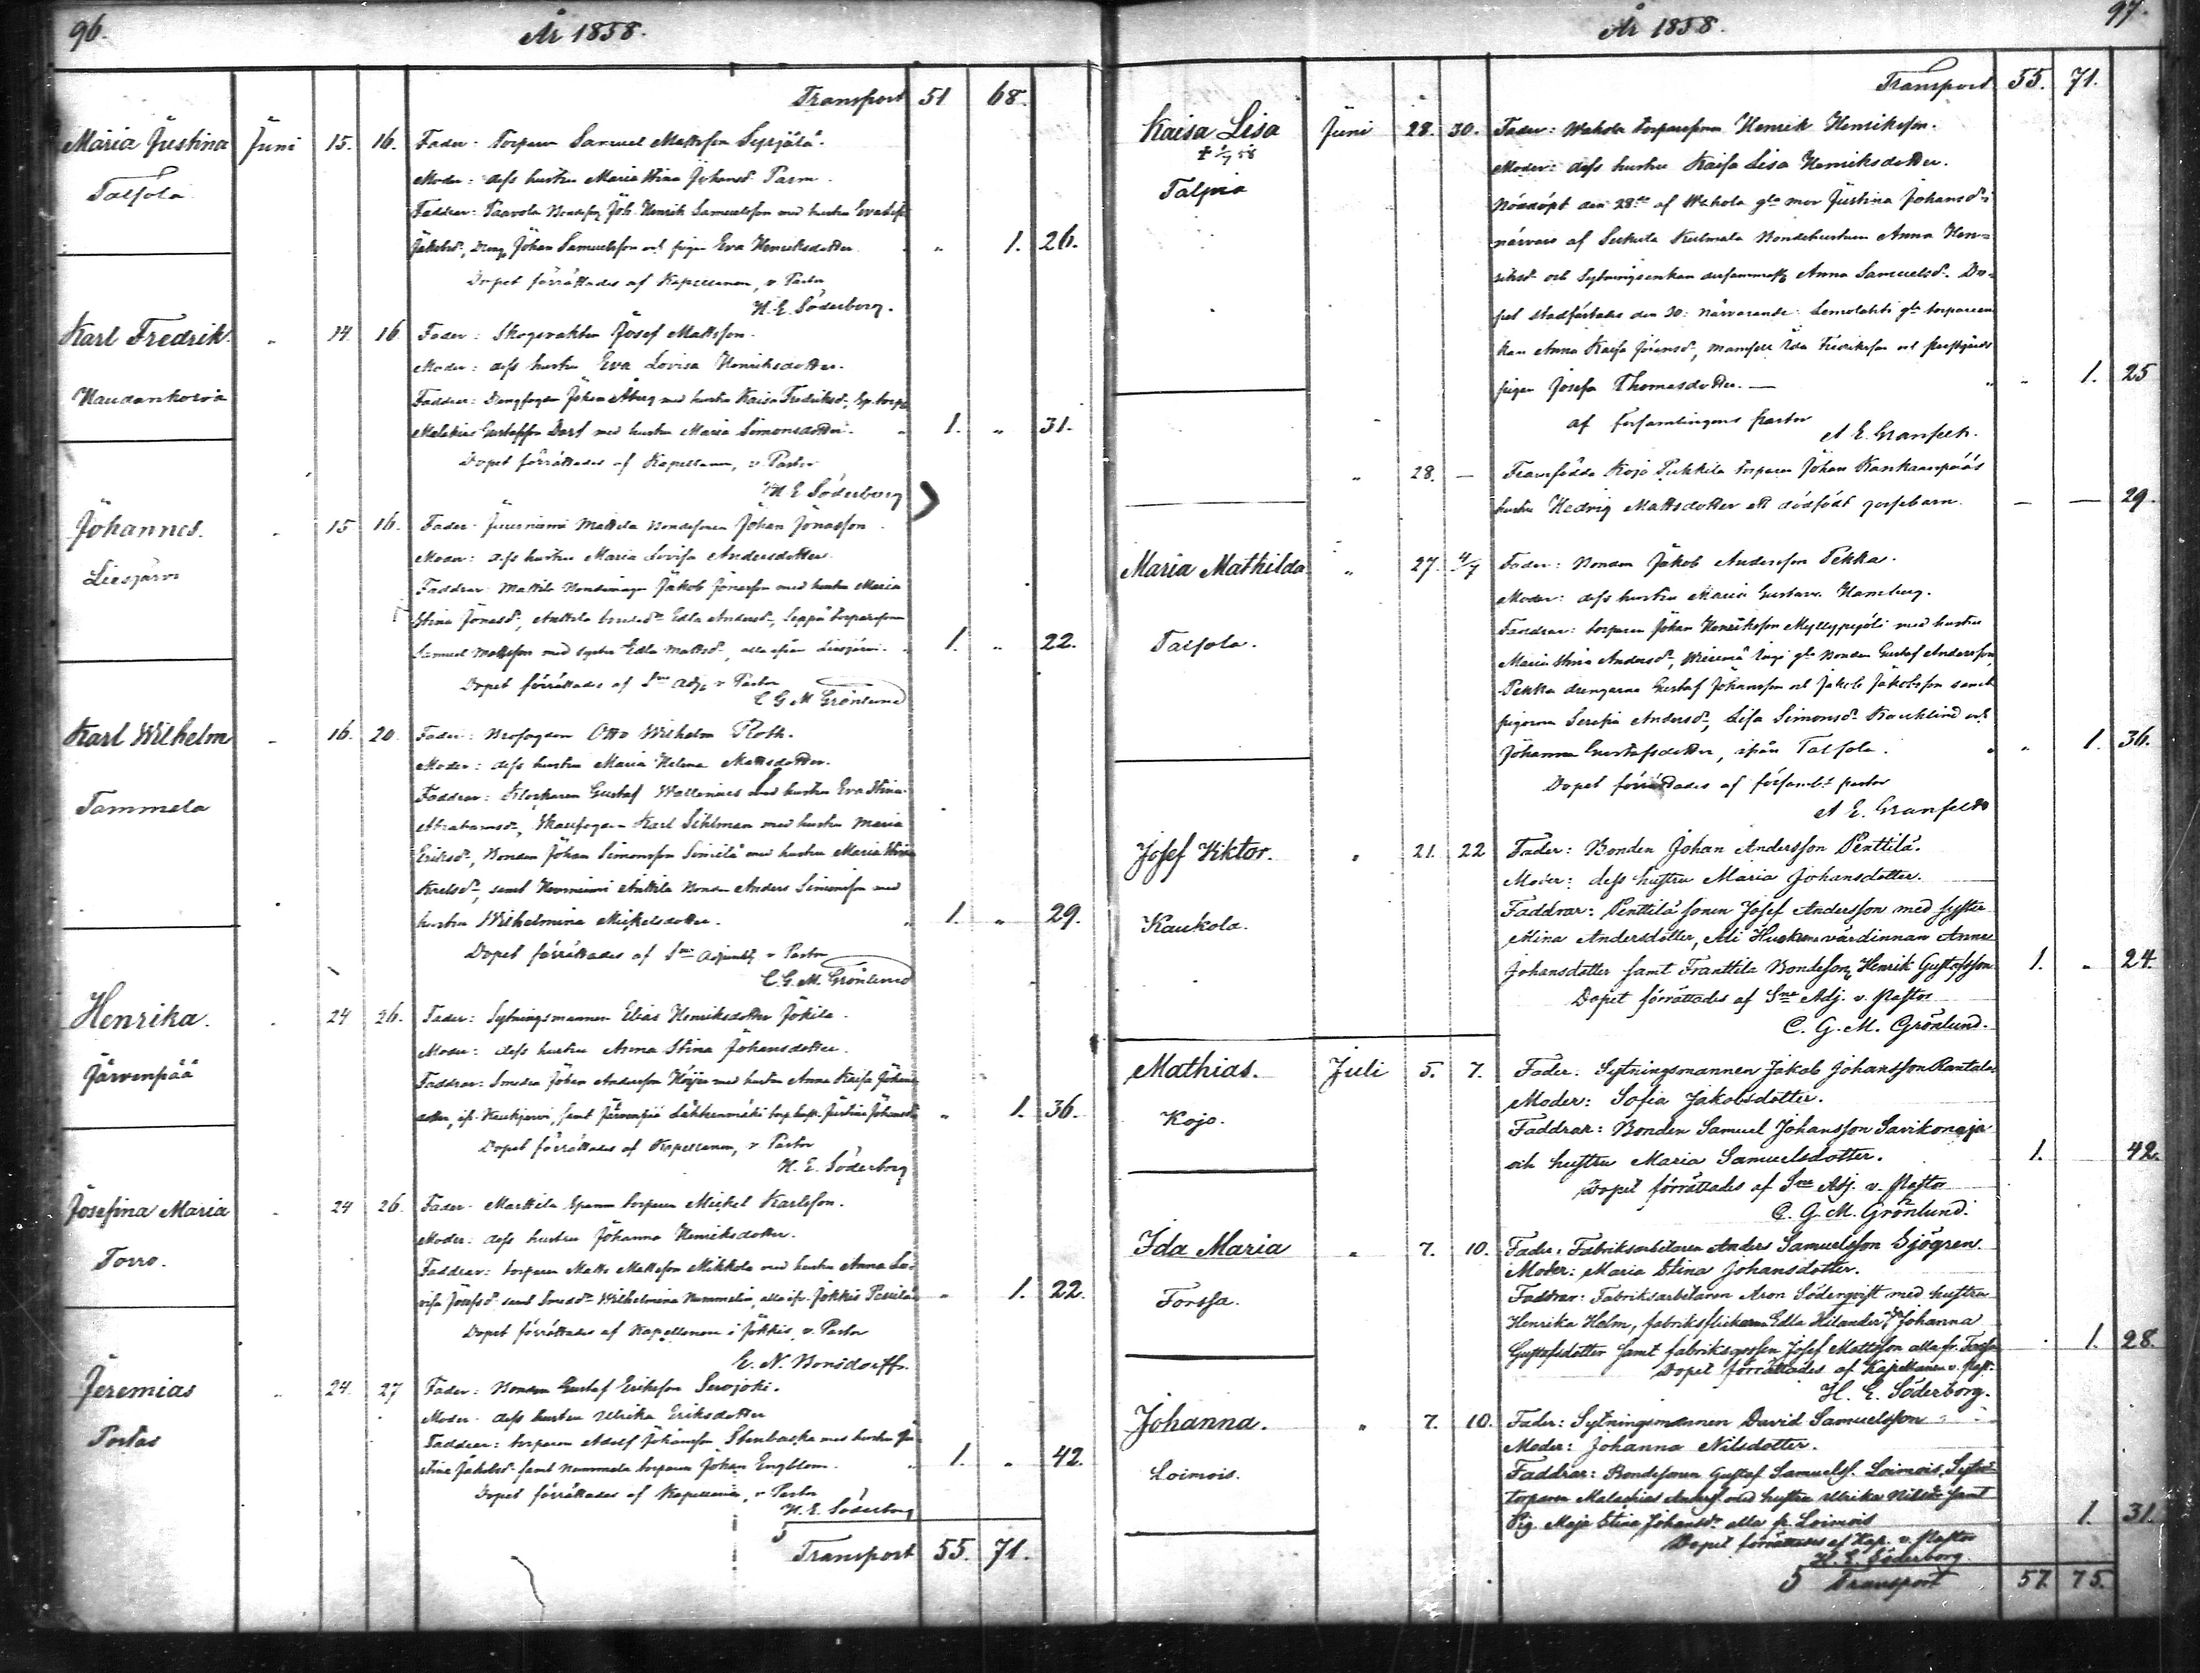 96.
År 1858.
Transport 51 68.
Maria Justina Juni 15. 16. Fader: Torparn Samuel Mattsson
Moder: dess hustru Maria Stina Johansd.
Talsola
Faddrar: Joh. Henrik Samuelsson med hustru
Johan Samuelsson och pigan Eva Henriksdotter " 1. 26.
Dopet förrättades af Kapellanen, v. Pastor
H. E. Söderborg.
Karl Fredrik. " 14 16 Fader: Skogsvakten Josef Mattsson.
Moder: dess hustru Eva Lovisa Henriksdotter.
Faddrar: Johan Åberg med hustru Kaisa Fredriksd.
Gustafsson med hustru Maria Simonsdotter. " 1. " 31.
Dopet förrättades af Kapellanen, v. Pastor
H. E. Söderborg
Johannes. " 15 16. Fader: Mattila Bondesonen Johan Jonasson.
Moder: dess hustru Maria Lovisa Andersdotter.
Liesjärvi
Faddrar: Mattila Jakob Jonasson med hustru Maria
Stina Jonasd., Edla Andersd., Seppä torparesonen
Samuel Mattsson med syster Edla Mattsd., alla ifrån Liesjärvi. 1. " 22.
Dopet förrättades af Sne Adj. v. Pastor
C. G. M. Grönlund
Karl Wilhelm " 16. 20. Fader: Otto Wilhelm Roth.
Moder: dess hustru Maria Helena Mattsdotter.
Tammela
Faddrar: Klockaren Gustaf Wallenius med hustru Eva Stina
Abrahamsd., Karl Sihlman med hustru Maria
Eriksd., Bonden Johan Simonsson Similä med hustru Maria
samt Anttila Bonden Anders Simonsson med
hustru Wilhelmina Mickelsdotter. " 1. " 29.
Dopet förrättades af Sne Adjunkt, v. Pastor
C. G. M. Grönlund
Henrika. " 24 26. Fader: Sytningsmannen Elias Henriksdotter Jokila.
Moder: dess hustru Anna Stina Johansdotter.
Järvenpää
Faddrar: Smeden Johan Andersson med hustru Anna Kaisa Johans-
dotter, samt Järvenpää Justina Johansd. " 1. 36.
Dopet förrättades af Kapellanen, v. Pastor
H. E. Söderborg
Josefina Maria " 24 26. Fader: Marttila torparen Mickel Karlsson.
Moder: dess hustru Johanna Henriksdotter.
Torro.
Faddrar: torparen Matts Mattsson Mikkola med hustru Anna Lo-
visa Josefsd. samt Wilhelmina alla ifr. Jokkis " 1. 22.
Dopet förrättades af Kapellanen i Jokkis, v. Pastor
E. N. Bonsdorff.
Jeremias " 24. 27 Fader: Bonden Gustaf Eriksson
Moder: dess hustru Ulrika Eriksdotter
Portas
Faddrar: torparen Adolf Johansson Stenbacka med hustru
Jakobsd. samt torparen Johan Engblom. " 1. " 42.
Dopet förrättades af Kapellanen, v. Pastor
H. E. Söderborg
5
Transport 55. 71.
År 1858.
97.
Transport 55. 71.
Kaisa Lisa Juni 28. 30. Fader: torparesonen Henrik Henriksson.
Moder: dess hustru Kaisa Lisa Henriksdotter.
Talpia
Nöddöpt den 28de af Justina Johansd.
närvaro af Bondehustrun Anna Hen-
riksd. och Sytningsenkan Anna Samuelsd. Do-
pet stadfästades den 30. närvarande: gla
Anna Kaisa mamsell Ida
pigan Josefa Thomasdotter. — " " 1. 25
af Församlingens pastor
A. E. Granfelt.
" 28. — Framfödde Kojo torparen Johan Kankaanpääs
hustru Hedvig Mattsdotter ett dödfödt gossebarn. — — 29.
Maria Mathilda " 27. 4/7 Fader: Bonden Jakob Andersson Pekka.
Moder: dess hustru Maria Gustava Hamberg.
Talsola.
Faddrar: torparen Johan Henriksson med hustru
Maria Stina Andersd., Bonden Gustaf Andersson,
Pekka drengarne Gustaf Johansson och Jakob Jakobsson samt
pigorna Serafia Andersd., Lisa Simonsd. och
Johanna Gustafsdotter, ifrån Talsola. " " 1. 36.
Dopet förrättades af församl:s pastor
A. E. Granfelt
Josef Viktor. " 21. 22 Fader: Bonden Johan Andersson Penttilä.
Moder: dess hustru Maria Johansdotter.
Kaukola.
Faddrar: Penttilä sonen Josef Andersson med syster
Mina Andersdotter, värdinnan Anna
Johansdotter samt Franttila Bondeson Henrik Gustafsson 1. " 24.
Dopet förrättades af Sne Adj. v. Pastor
C. G. M. Grönlund.
Mathias. Juli 5. 7. Fader: Sytningsmannen Jakob Johansson Rantala
Moder: Sofia Jakobsdotter.
Kojo.
Faddrar: Bonden Samuel Johansson Savikonoja
och hustru Maria Samuelsdotter. 1. 42.
Dopet förrättades af Sne Adj. v. Pastor
C. G. M. Grönlund.
Ida Maria " 7. 10. Fader: Fabriksarbetaren Anders Samuelsson Sjögren.
Moder: Maria Stina Johansdotter.
Forssa.
Faddrar: Fabriksarbetaren Aron Söderqvist med hustru
Henrika Holm, fabriksflickorna Edla Hilander och Johanna
Gustafsdotter samt fabriksgossen Josef Mattsson alla fr. Forssa 1. 28.
Dopet förrättades af Kapellanen v. Past.
H. E. Söderborg.
Johanna. " 7. 10. Fader: Sytningsmannen David Samuelsson
Moder: Johanna Nilsdotter.
Loimois.
Faddrar: Bondesonen Gustaf Samuelss. Loimois,
torparen Malachias med hustru Ulrika Nilsd. samt
Pig. Maja Stina Johansd. alla fr. Loimois 1. 31.
Dopet förrättades af Kap. v. Pastor
H. E. Söderborg
5 Transport 57. 75.